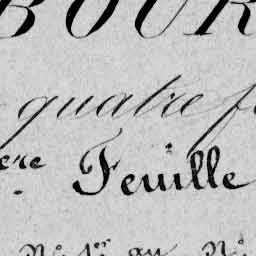 BOUR
quatre f
ère Feuille
N° 1er au N°